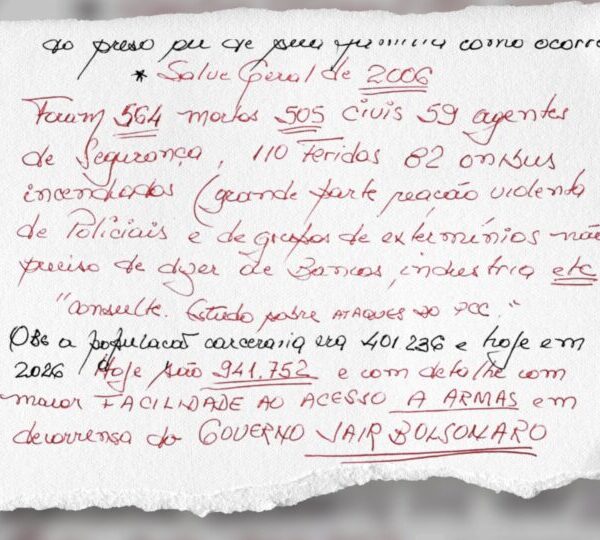 do preso ou de sua família como ocorre
* Salve Geral de 2006
Foram 564 mortos 505 civis 59 agentes
de Segurança, 110 feridos 82 onibus
incendiados (grande parte reacão violenta
de Policiais e de grupos de extermínios não
preciso de dizer de Bancos, industria etc
"consulte. Estudo sobre ATAQUES DO PCC."
Obs a populacão carceraria era 401 236 e hoje em
2026 Hoje são 941.752 e com detalhe com
maior FACILIDADE AO ACESSO A ARMAS em
decorrensa do GOVERNO JAIR BOLSONARO